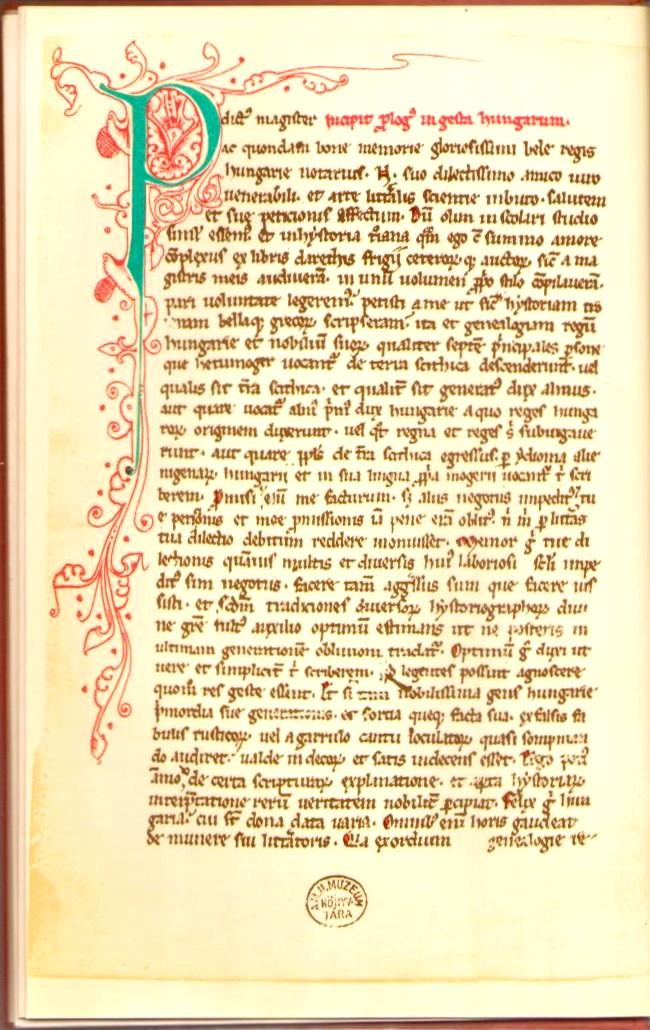 P dictꝰ magister Incipit ꝓlogꝰ in gesta hungarum.
ac quondam bone memorie gloriosissimi bele regis
hungarie notarius. N. suo dilectissimo amico uiro
uenerabili. et arte litt̃alis scientie inbuto. salutem
et sue peticionis effectum. Dũ olim in scolari studio
simul essemꝰ. et in hystoria t̃iana qͣm ego cũ summo amore
cõplexus ex libris darethis frigii ceteroꝝ qꝫ auctoꝝ. sic̃ a ma
gistris meis audiuerã. in unũ uolumen ꝓprio stilo cõpilauerã.
pari uoluntate legeremꝰ. petisti a me ut sic̃ hystoriam t̃o
ianam bellaqꝫ grecoꝝ scripseram. ita et genealogiam regũ
hungarie et nobiliũ suoꝝ. qualiter septẽ p̃ncipales ꝑsone
que hetumoger uocant̃ de terra scithica descenderunt. uel
qualis sit t̃ra scithica. et qualit̃ sit generatꝰ dux almus.
aut quare uocat̃ almꝰ p̃mꝰ dux hungarie a quo reges hunga
roꝝ originem duxerunt. uel qͦt regna et reges s̃ subiugaue
runt. aut quare ppl̃s de t̃ra scithica egressus ꝑ ydioma alie
nigenaꝝ hungarii et in sua lingua ꝓp̃a mogerii uocant̃ t̃ scri
berem. Promisi eni᷑ me facturum. sꝫ aliis negotiis impeditꝰ. tu
e peticionis et mee ꝓmissionis iã pene erã oblitꝰ. n̄ m̄ ꝑ litt̃as
tua dilectio debitum reddere monuisset. Memor g̃ tue di
lectionis quãuis multis et diuersis huiꝰ laboriosi sc̃li impe
ditꝰ sim negotiis. facere tam̃ aggressus sum que facere ius
sisti. et scd̃m tradiciones diuersoꝝ hystoriographoꝝ diui
ne gr̃e fultꝰ auxilio optimũ estimans ut ne posteris in
ultimam generationẽ obliuioni tradat̃. Optimum g̃ duxi ut
uere et simplicit̃ t̃ scriberem. qd̃ legentes possint agnoscere
quom̃ res geste essent. Et si tam nobilissima gens hungarie
p̃mordia sue generationis. et fortia queqꝫ facta sua. ex falsis fa
bulis rusticoꝝ. uel a garrulo cantu ioculatoꝝ quasi sompnian
do audiret. ualde indecoꝝ et satis indecens esset. Ergo pociꝰ
ãmodo de certa scripturaꝝ explanatione. et apta hystoriaꝝ
interp̃tatione rerũ ueritatem nobilit̃ ꝑcipiat. Felix g̃ hun
garia. cui st̃ dona data uaria. Omnibꝰ eni᷑ horis gaudeat
de munere sui litt̃atoris. Quia exordium genealogie re
A M. N. MUZEUM
KÖNYV
TÁRA